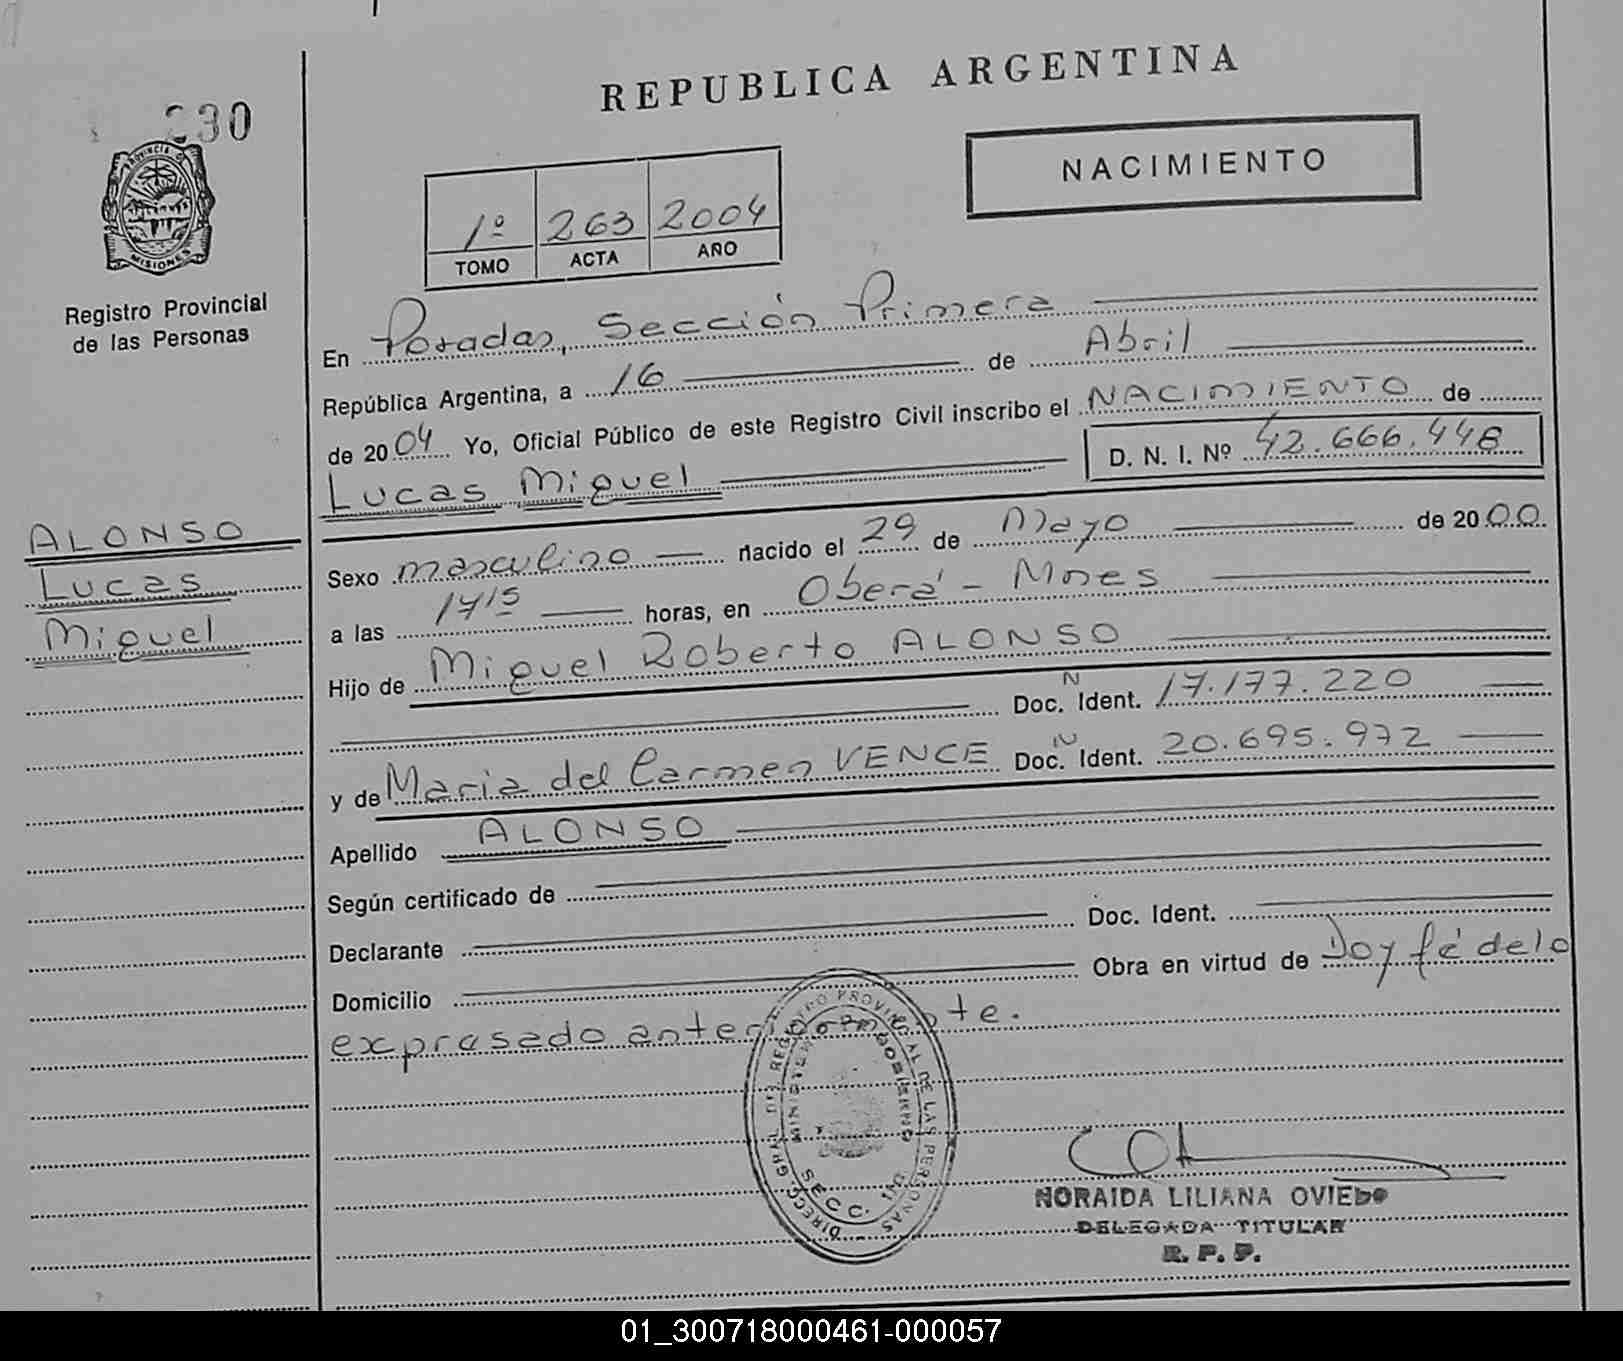 REPUBLICA ARGENTINA
230
PROVINCIA DE
MISIONES
Registro Provincial
de las Personas
NACIMIENTO
1º 263 2004
TOMO ACTA AÑO
En Posadas, Sección Primera
República Argentina, a 16 de Abril
de 2004 Yo, Oficial Público de este Registro Civil inscribo el NACIMIENTO de
Lucas Miguel D. N. I. Nº 42.666.448
ALONSO
Lucas
Miguel
Sexo masculino nacido el 29 de Mayo de 2000
a las 14 15 horas, en Oberá - Mnes
Hijo de Miguel Roberto ALONSO
Doc. N Ident. 17.177.220
y de Maria del Carmen VENCE Doc. N Ident. 20.695.972
Apellido ALONSO
Según certificado de
Declarante Doc. Ident.
Domicilio Obra en virtud de Doy fé de lo
expresado anteriormente.
DIRECC. GRAL. DEL REGISTRO PROVINCIAL DE LAS PERSONAS
MINISTERIO GOBIERNO
SECC.
NORAIDA LILIANA OVIEDO
DELEGADA TITULAR
R. P. P.
01_300718000461-000057